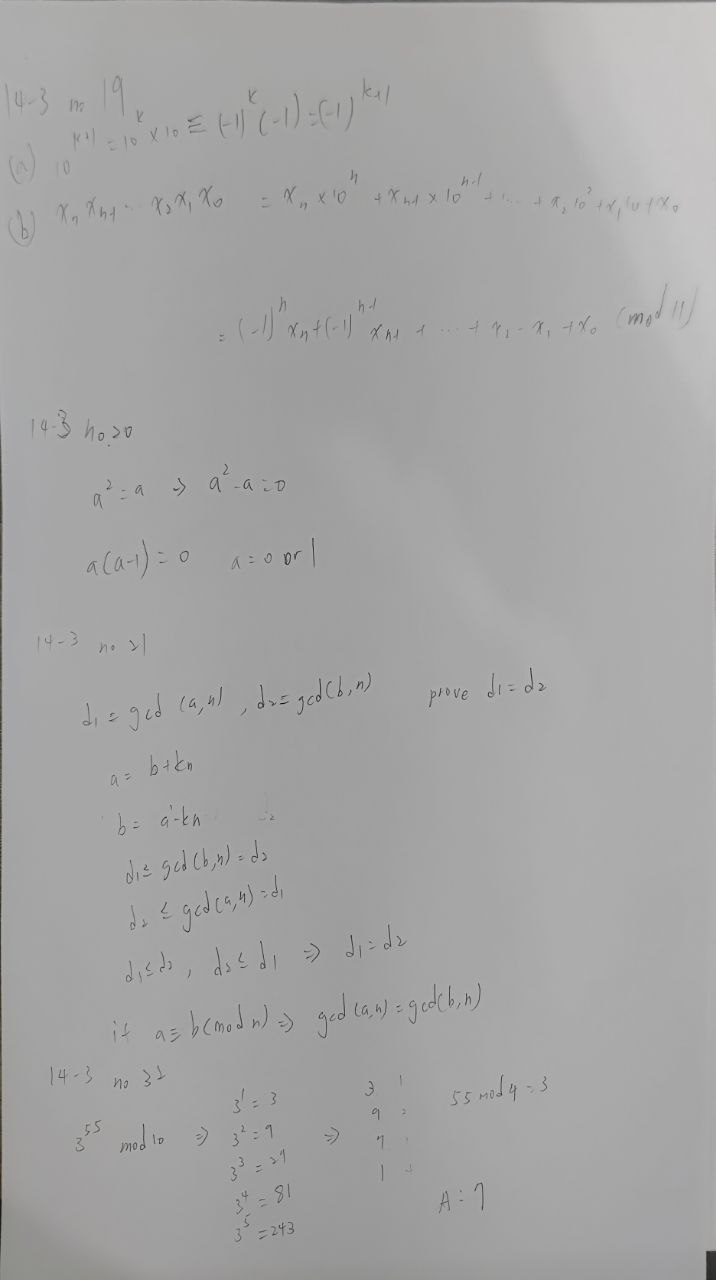 14-3 no 19
(a) 10^{k+1} = 10^k × 10 ≡ (-1)^k (-1) = (-1)^{k+1}
(b) x_n x_{n-1} ... x_2 x_1 x_0 = x_n × 10^n + x_{n-1} × 10^{n-1} + ... + x_2 10^2 + x_1 10 + x_0
= (-1)^n x_n + (-1)^{n-1} x_{n-1} + ... + x_2 - x_1 + x_0 (mod 11)
14-3 no.20
a^2 = a ⇒ a^2 - a = 0
a(a-1) = 0 a = 0 or 1
14-3 no 21
d_1 = gcd (a,n) , d_2 = gcd(b,n) prove d_1 = d_2
a = b+kn
b = a-kn
d_1 ≤ gcd (b,n) = d_2
d_2 ≤ gcd(a,n) = d_1
d_1 ≤ d_2 , d_2 ≤ d_1 ⇒ d_1 = d_2
if a ≡ b(mod n) ⇒ gcd (a,n) = gcd(b,n)
14-3 no 32
3^1 = 3 3 1 55 mod 4 = 3
3^{55} mod 10 ⇒ 3^2 = 9 ⇒ 9
3^3 = 27 7
3^4 = 81 1 A : 7
3^5 = 243